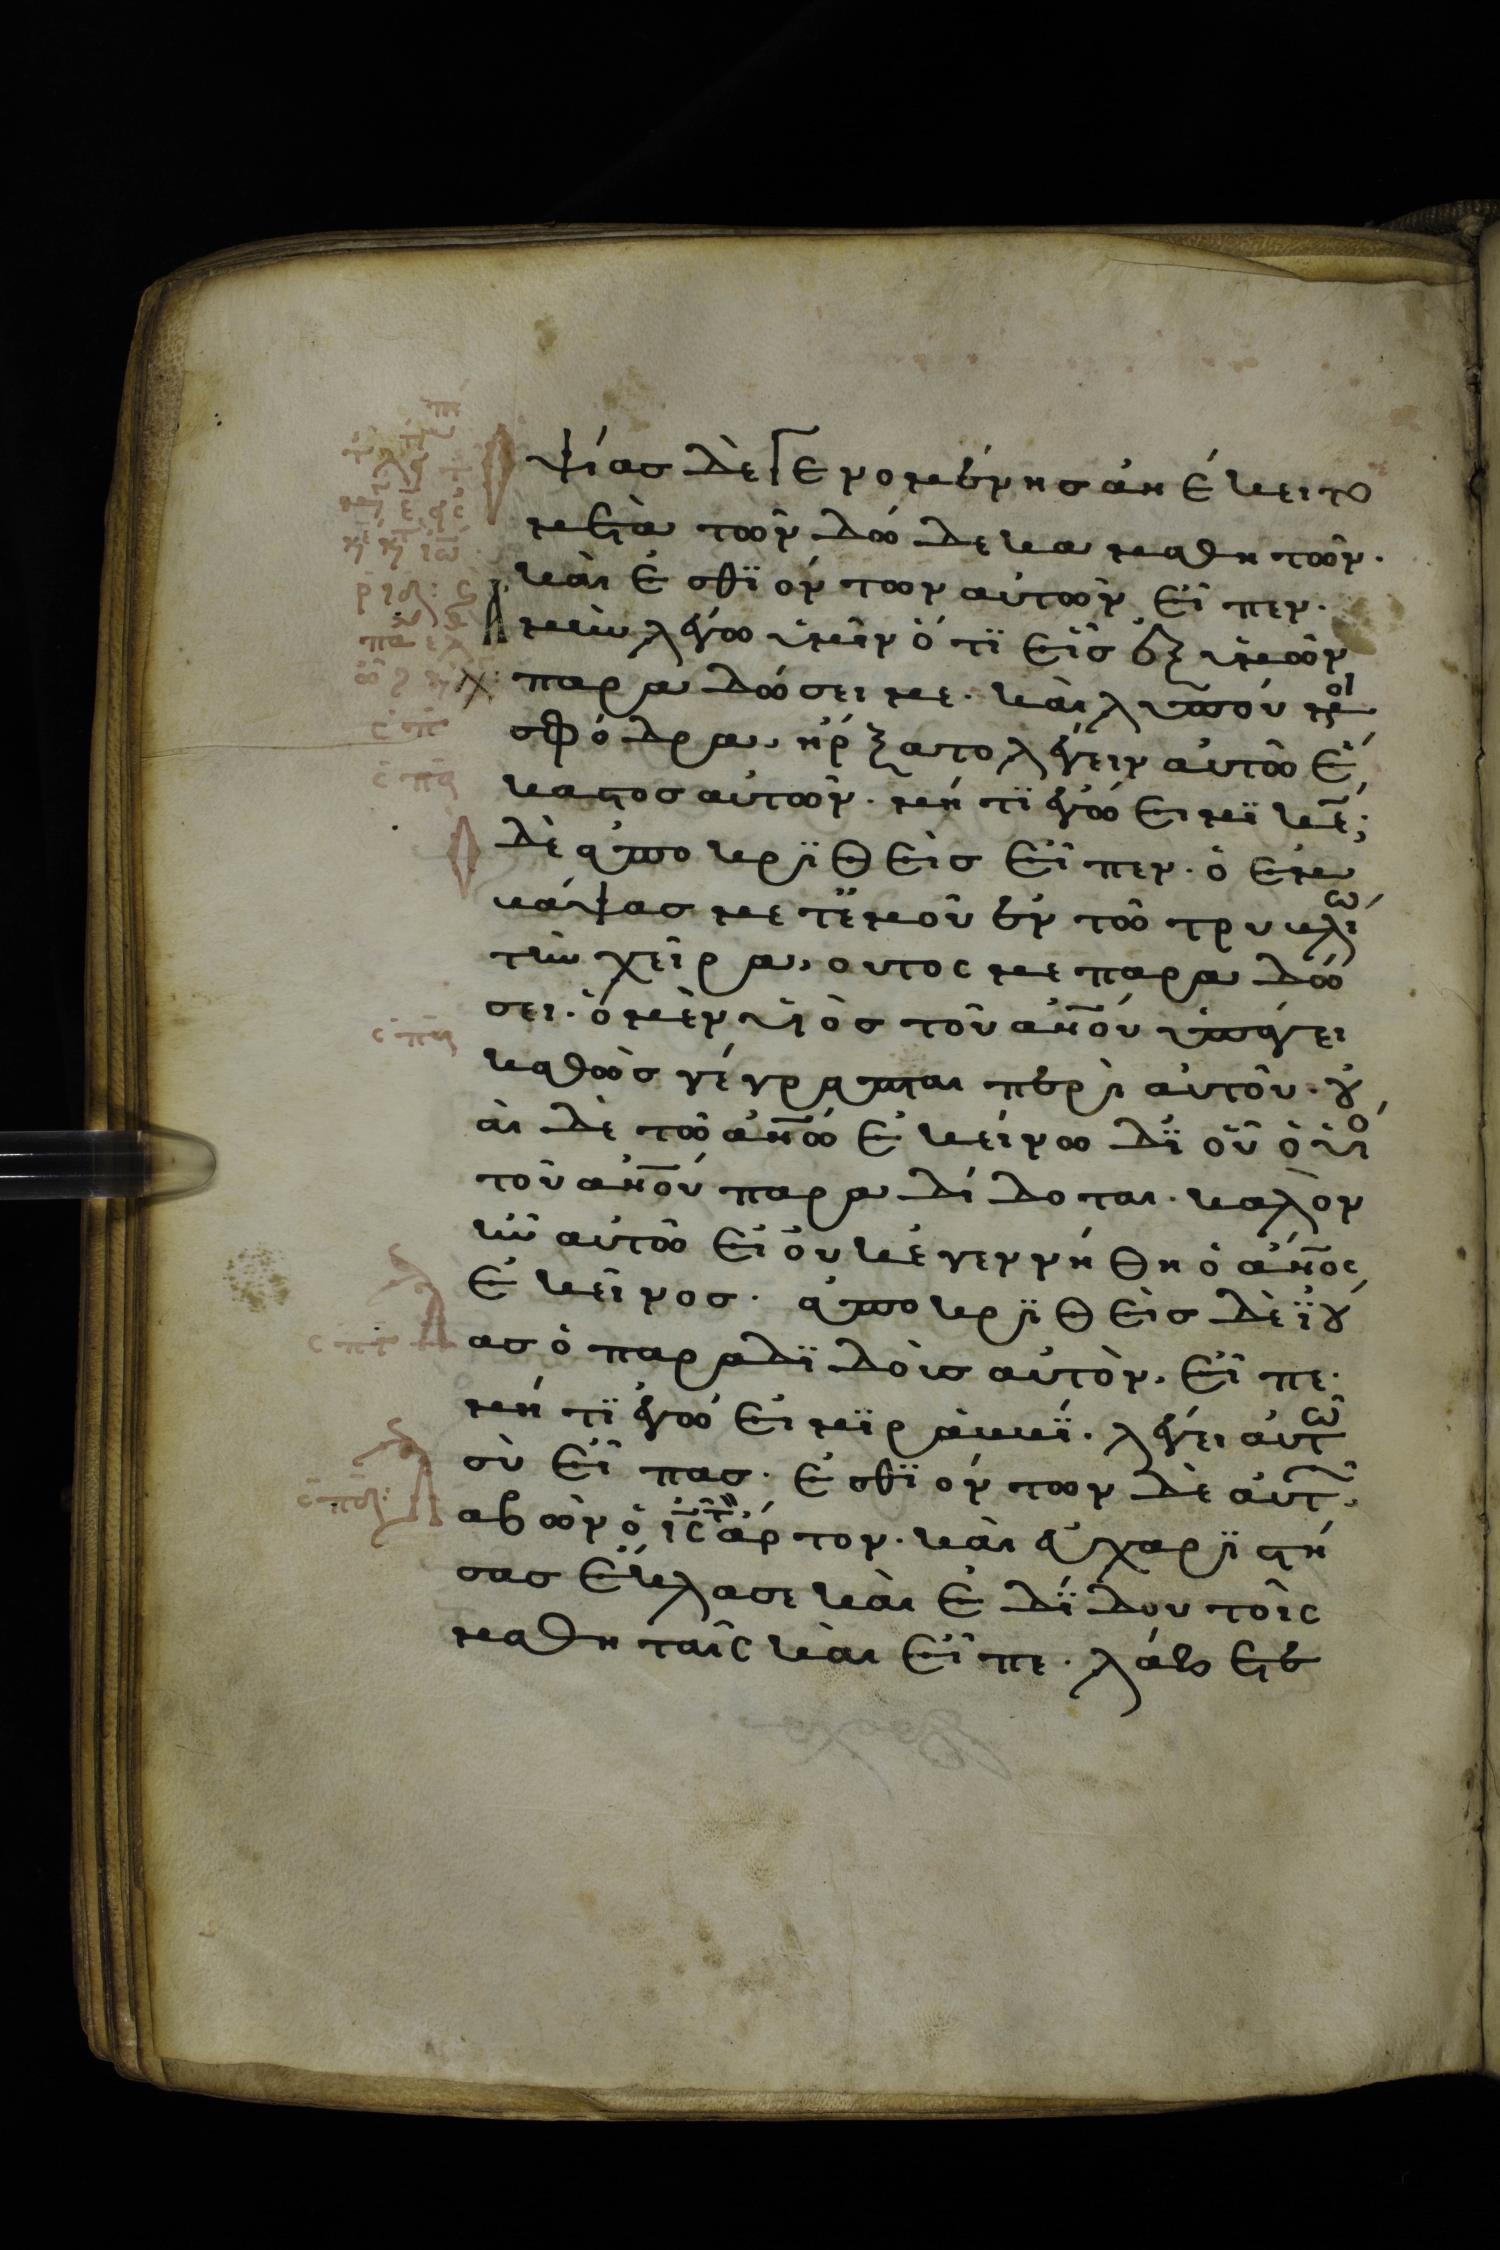 Ὀψίας δὲ γενομένης ἀνέκειτο
μετὰ τῶν δώδεκα μαθητῶν.
καὶ ἐσθϊόντων αὐτῶν εἶπεν.
Ἀμὴν λέγω ὑμῖν ὅτϊ εἷς ἐξ ὑμῶν
παραδώσει με. καὶ λυπούμενοι
σφόδρα, ἤρξατο λέγειν αὐτῶ ἕ
καστος αὐτῶν. μή τϊ ἐγώ εἰμϊ κε̅;
ὁ δὲ ἀποκρϊθεὶς εἶπεν. ὁ ἐμ
βάψας μετ' ἐμοῦ ἐν τῶ τρυβλίω
τὴν χεῖρα, οὗτος με παραδώ
σει. ὁ μὲν υἱὸς τοῦ ἀν̅ο̅υ̅ ὑπάγει
καθὼς γέγραπται περὶ αὐτοῦ. οὐ
αὶ δὲ τῶ ἀν̅ω̅ ἐκείνω δϊ' οὗ ὁ υἱὸ
τοῦ ἀν̅ο̅υ̅ παραδίδοται. καλὸν
ἦν αὐτῶ εἰ οὐκ ἐγεννήθη ὁ ἄν̅ο̅ς̅
ἐκεῖνος. ἀποκρϊθεὶς δὲ ϊού
δας ὁ παραδϊδοὺς αὐτὸν, εἶπε.
μή τϊ ἐγώ εἰμϊ ραββΐ. λέγει αὐτῶ
σὺ εἶπας. ἐσθϊόντων δὲ αὐτῶ
λαβὼν ὁ ι̅ς̅ τὸν ἄρτον. καὶ εὐχαρϊστή
σας ἔκλασε καὶ ἐδΐδου τοῖς
μαθηταῖς καὶ εἶπε. λάβετε